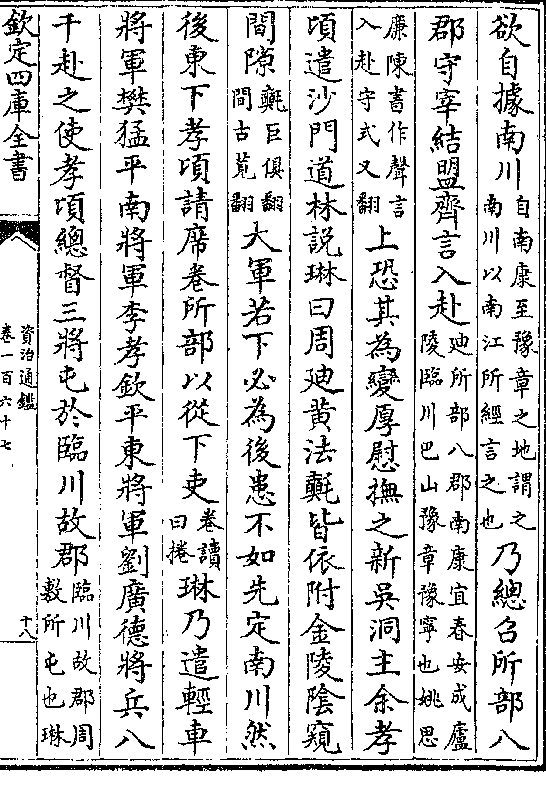 欲自據南川自南康至豫章之地謂之南川以南江所經言之也乃總召所部八
郡守宰結盟齊言入赴廸所部八郡南康宜春安成廬陵臨川巴山豫章豫寧也姚思
廉陳書作聲言入赴守式又翻上恐其為變厚慰撫之新吳洞主余孝
頃遣沙門道林說琳曰周廸黄法𣰰皆依附金陵陰窺
間隙𣰰巨俱翻間古莧翻大軍若下必為後患不如先定南川然
後東下孝頃請席卷所部以從下吏卷讀曰捲琳乃遣輕車
將軍樊猛平南將軍李孝欽平東將軍劉廣德將兵八
千赴之使孝頃總督三將屯於臨川故郡臨川故郡周敷所屯也琳
欽定四庫全書
資治通鑑
卷一百六十七
十八